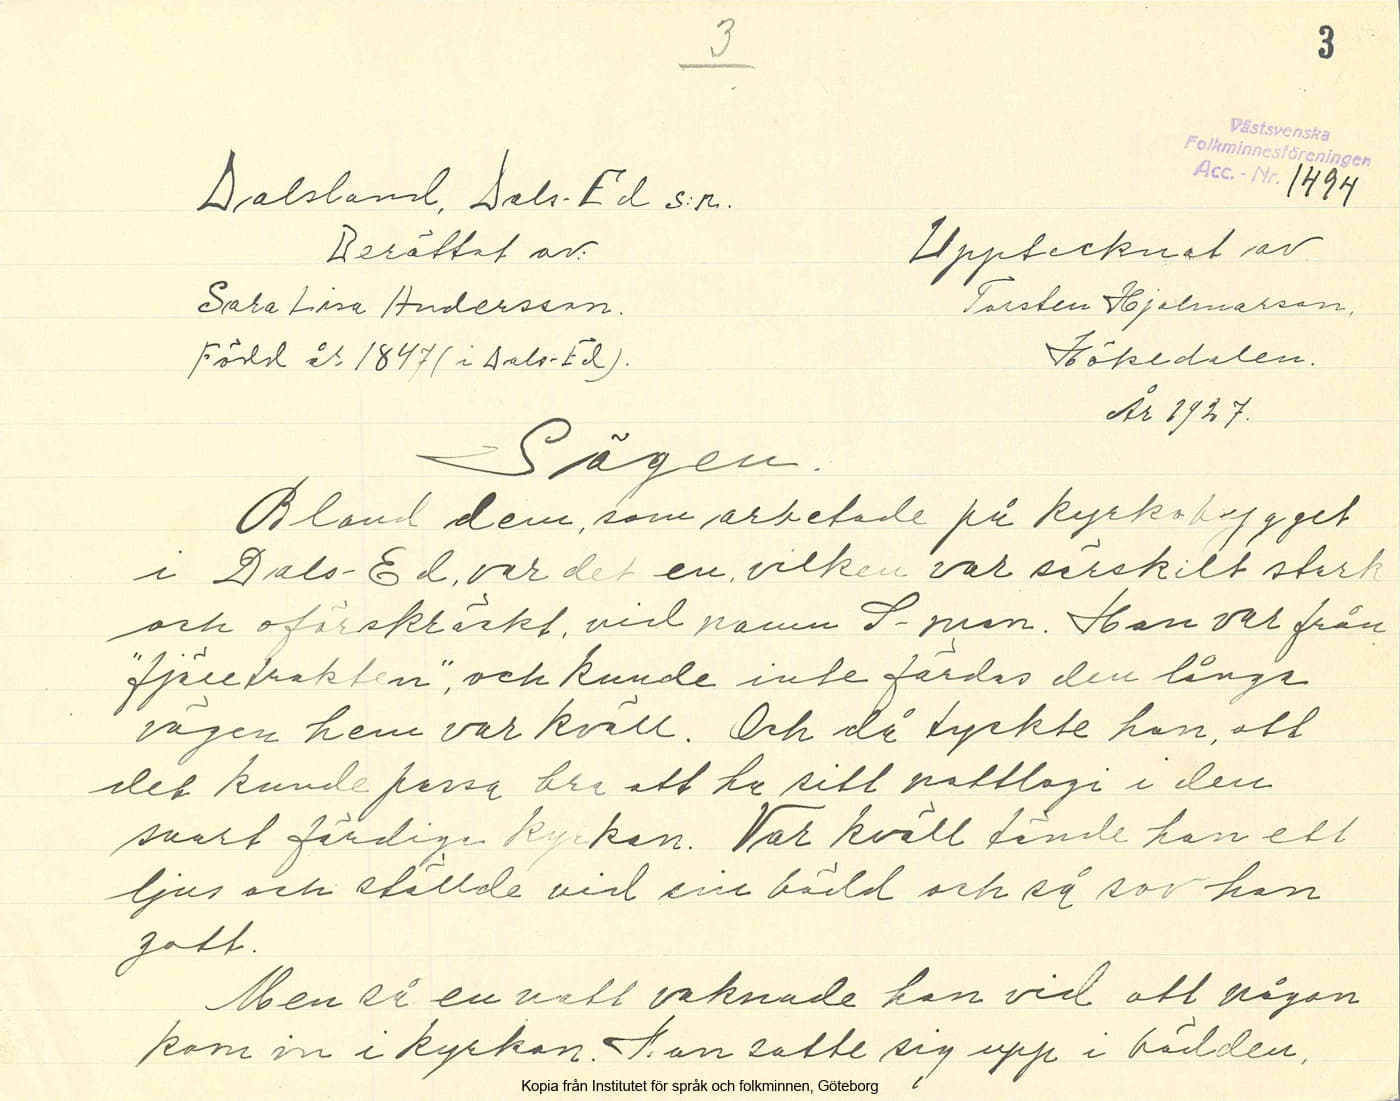 3
3
Västsvenska
Folkminnesföreningen
Acc. - Nr. 1494
Dalsland, Dals-Ed s:n.
Berättat av:
Upptecknat av
Sara Lisa Andersson.
Torsten Hjalmarson,
Född år 1847 (i Dals-Ed).
Hökedalen.
År 1927.
Sägen.
Bland dem, som arbetade på kyrkobygget
i Dals-Ed, var det en, vilken var särskilt stark
och oförskräckt, vid namn S-man. Han var från
"fjälltrakten", och kunde inte färdas den långa
vägen hem var kväll. Och då tyckte han, att
det kunde passa bra att ha sitt nattlogi i den
snart färdiga kyrkan. Var kväll tände han ett
ljus och ställde vid sin bädd och så sov han
gott.
Men så en natt vaknade han vid att någon
kom in i kyrkan. Han satte sig upp i bädden,
Kopia från Institutet för språk och folkminnen, Göteborg